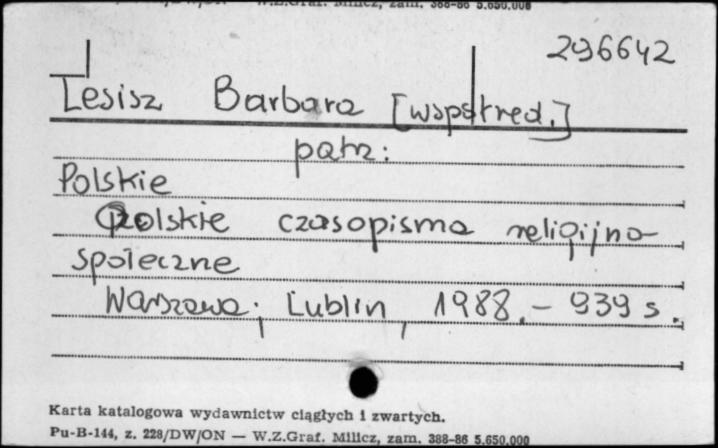 W.Z.Graf. Milicz, zam. 388-86 5.650.000
296642
Lesisz Barbara [współred.]
patrz:
Polskie
Polskie czasopisma religijno-
społeczne
Warszawa; Lublin, 1988. - 939 s.
Karta katalogowa wydawnictw ciągłych i zwartych.
Pu-B-144, z. 228/DW/ON — W.Z.Graf. Milicz, zam. 388-86 5.650.000